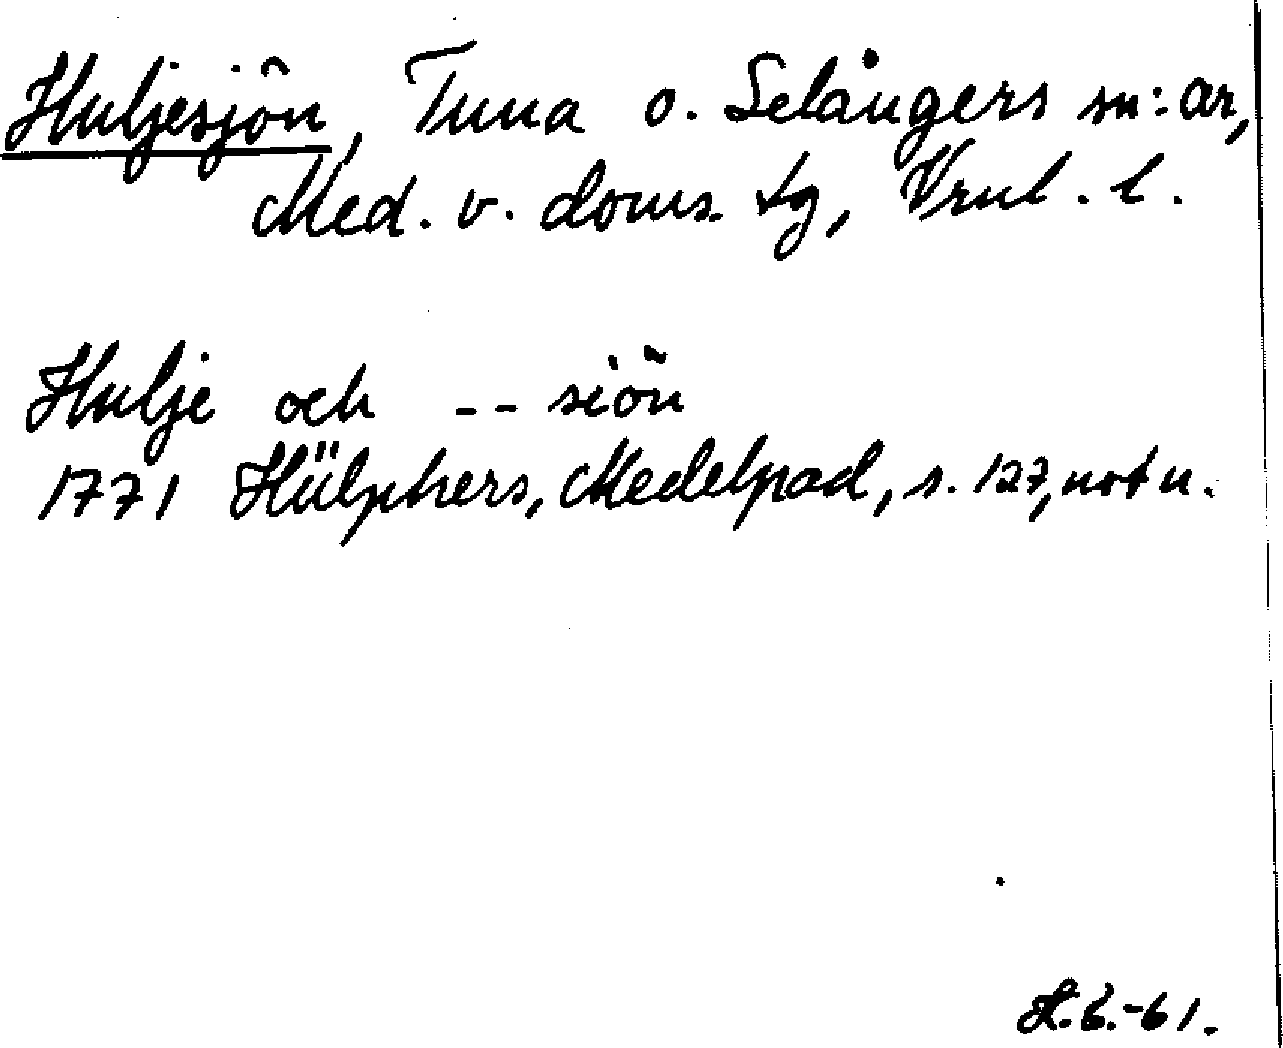 Huljesjön, Tuna o. Selångers sn:ar,
Med. v. doms. tg, Vrnl. l.
Hulje och -- siön
1771 Hülphers, Medelpad, s. 127, not u.
H.6.-61.